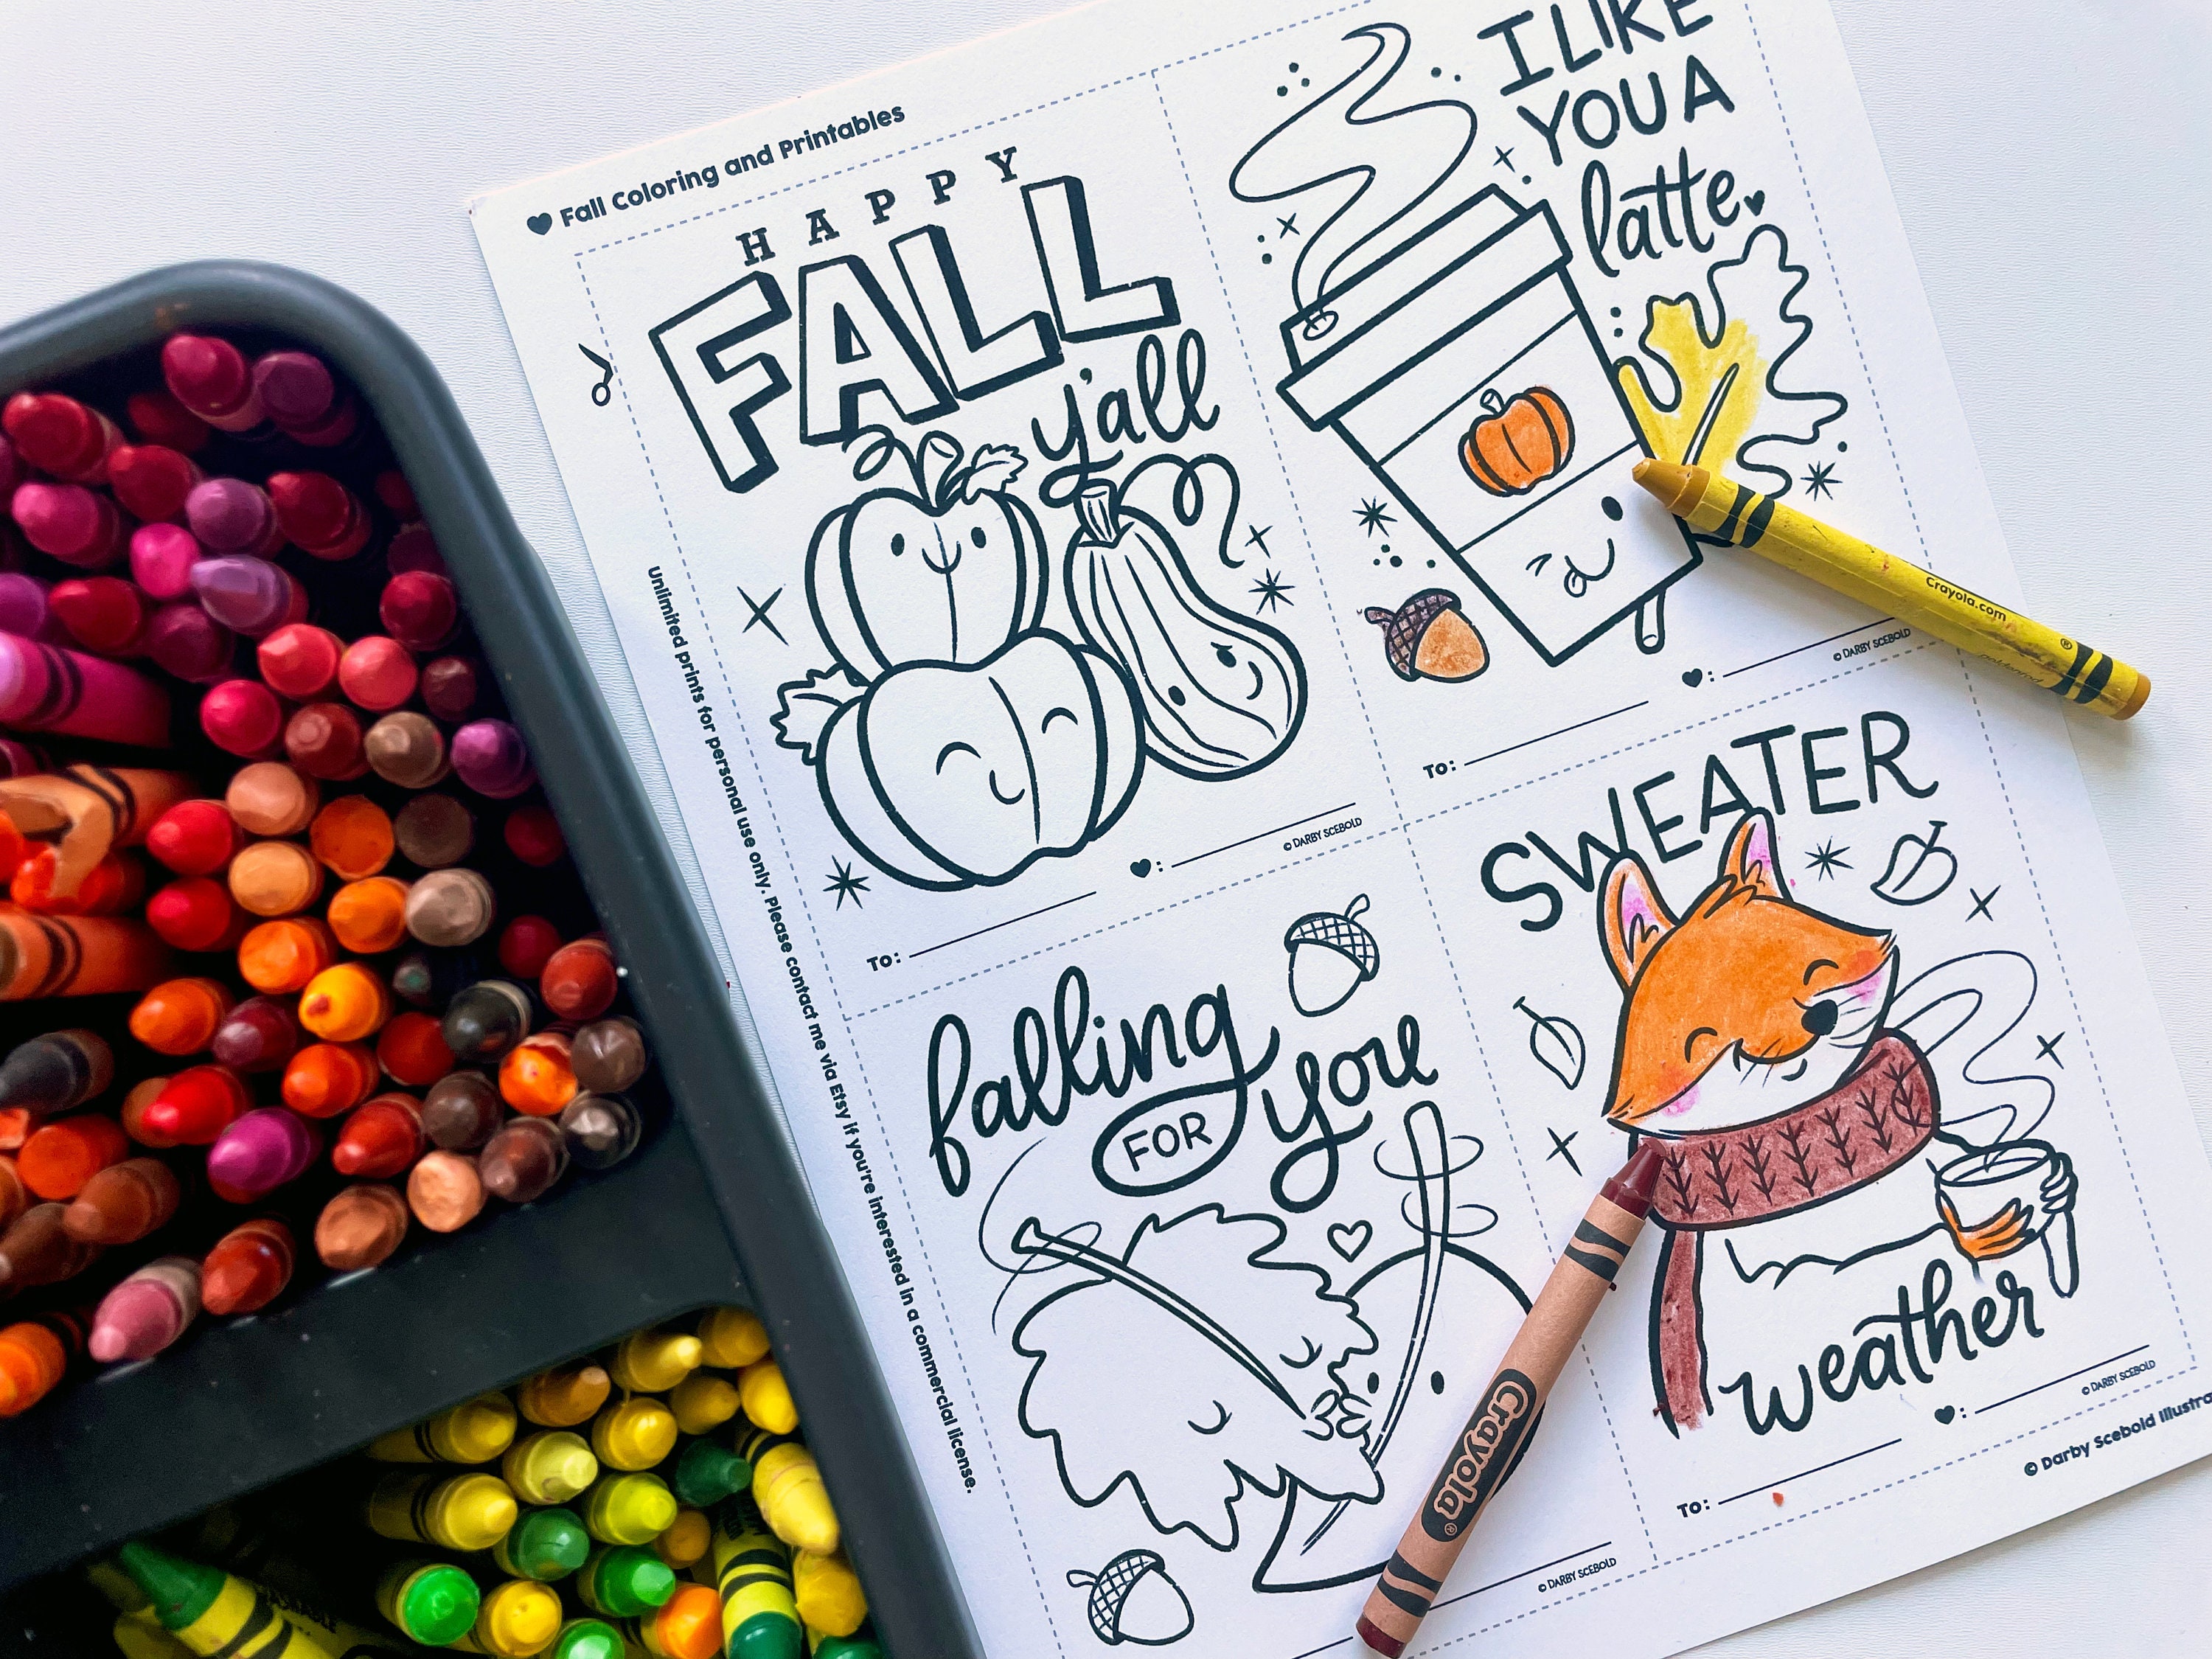 ♥ Fall Coloring and Printables
HAPPY
FALL
y'all
♥:
© DARBY SCEBOLD
To:
I LIKE
YOU A
latte.
Crayola.com
goldenrod
♥:
© DARBY SCEBOLD
To:
Unlimited prints for personal use only. Please contact me via Etsy if you're interested in a commercial license.
falling
FOR
you
© DARBY SCEBOLD
Crayola®
SWEATER
weather
♥:
© DARBY SCEBOLD
To:
© Darby Scebold Illustra